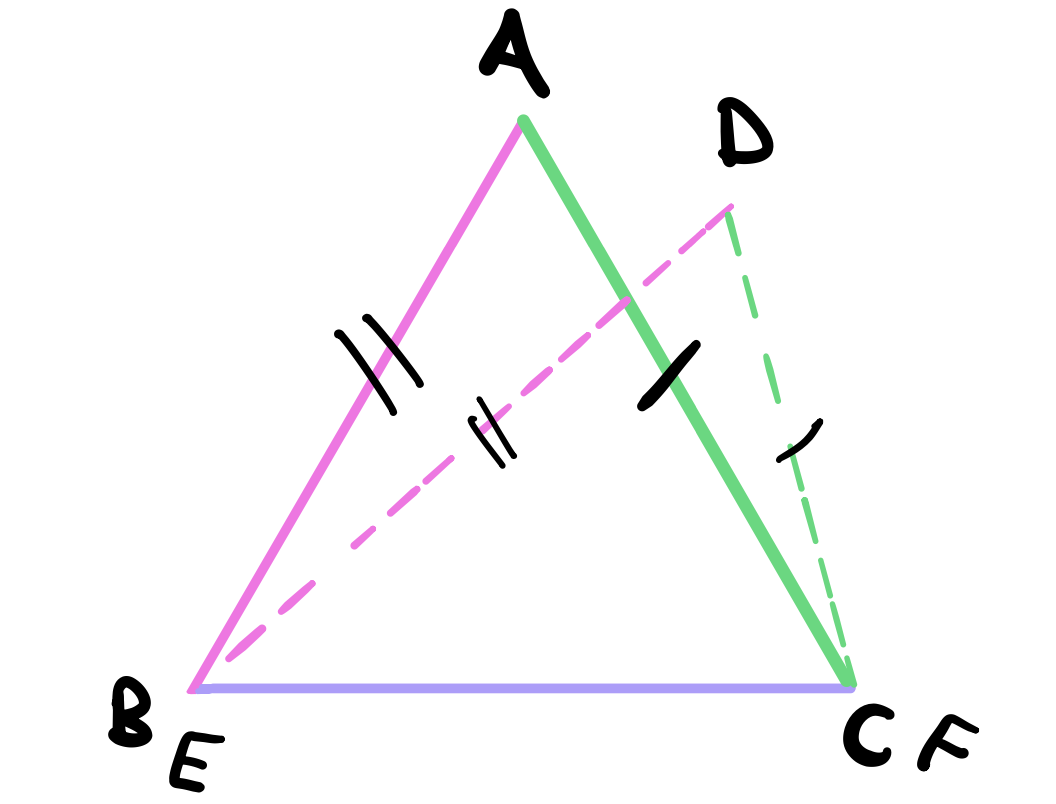 A
D
B
E
C F